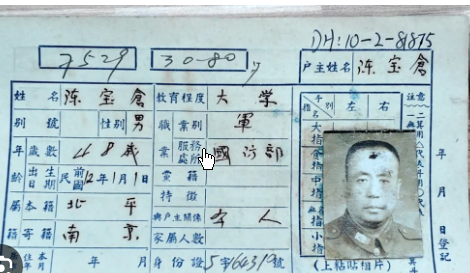 DH:10-2-81875
7529 30-80
戶主姓名 陈宝倉
姓名 陈宝倉 教育程度 大学
別號 性別 男 職業 業別 軍
年齡 歲數 48歲 服務處所 國防部
出生日期 民前12年1月1日 黨籍
屬籍 本籍 北平 特徵
寄籍 南京 與戶主關係 本人
家屬人數
年 月 身份證 字 號
指 手別 左 右
大指
食指
中指
小指
注意
年 月 日登記
(上粘貼相片)